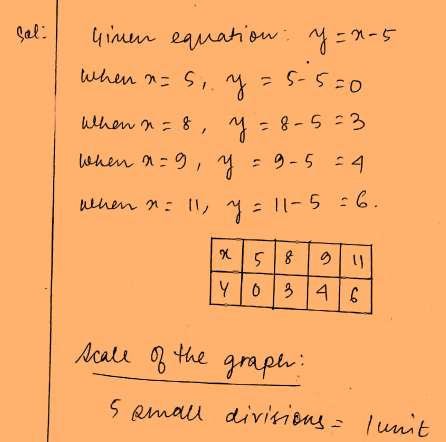 Sol: Given equation: y = x-5
When x = 5, y = 5-5 = 0
When x = 8, y = 8-5 = 3
When x = 9, y = 9-5 = 4
When x = 11, y = 11-5 = 6.
x 5 8 9 11
y 0 3 4 6
Scale of the graph:
5 small divisions = 1 unit